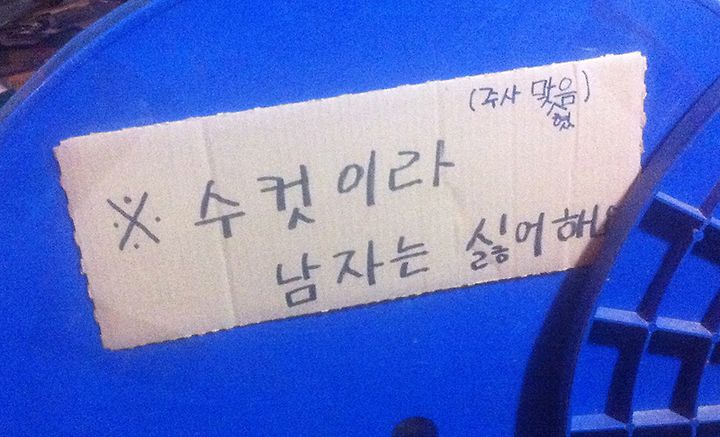 (주사 맞음)
혔
※ 수컷이라
남자는 싫어해요